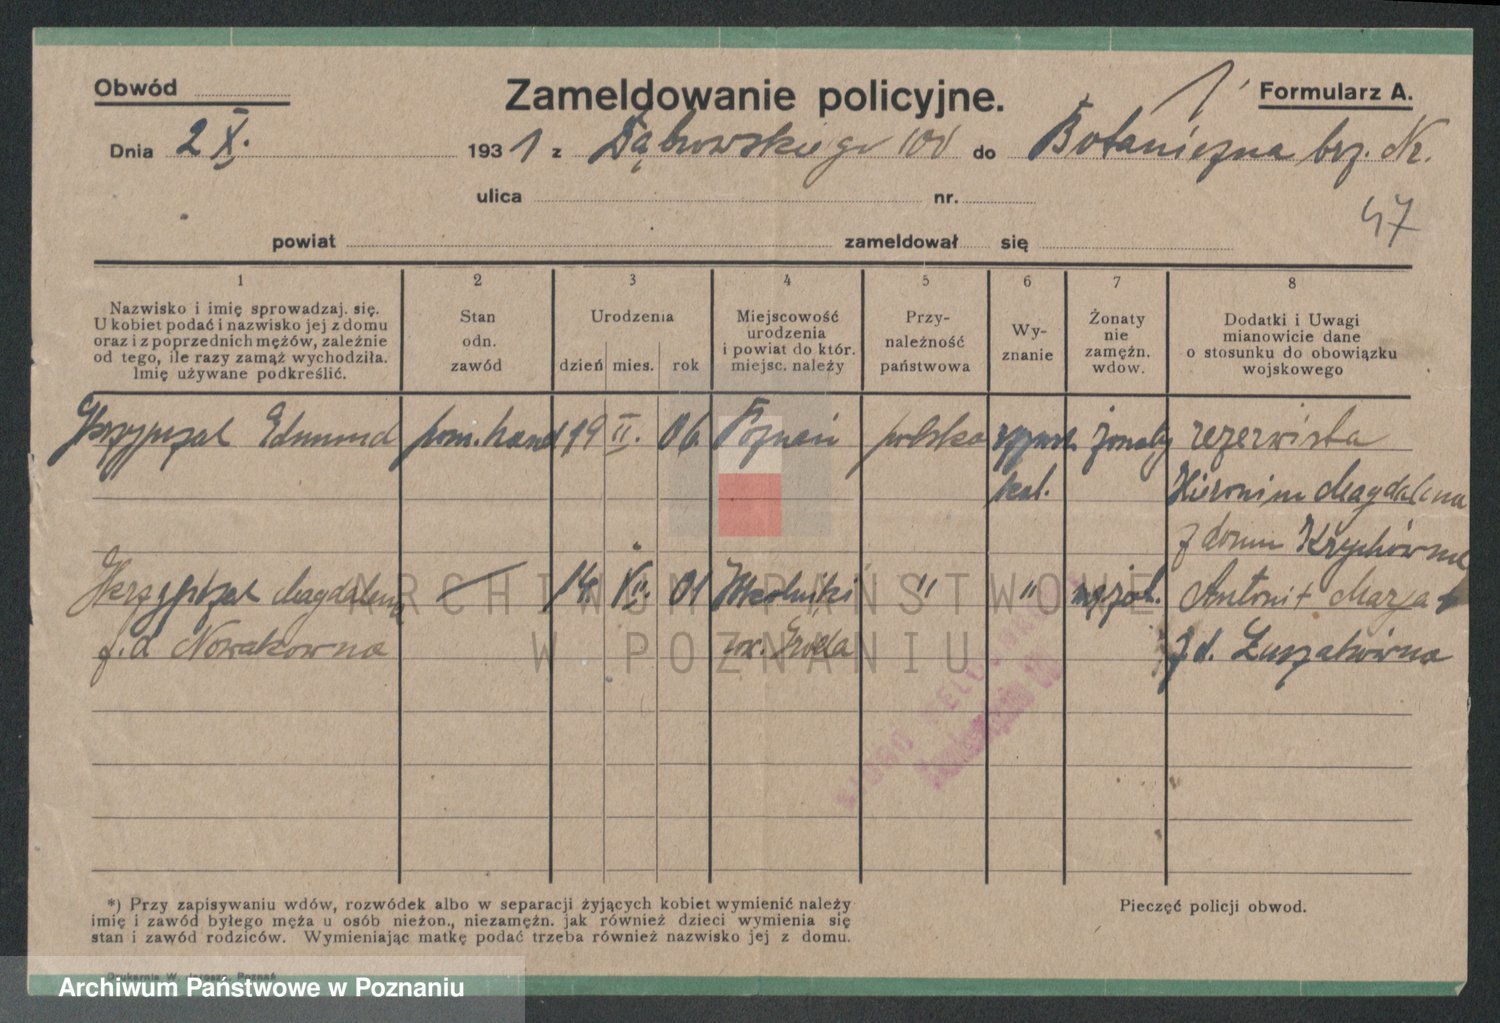 Obwód
Zameldowanie policyjne.
Formularz A.
Dnia 2 X. 1931 z Dąbrowskiego do Botaniczna brz. Nr.
ulica nr.
47
powiat zameldował się
1 2 3 4 5 6 7 8
Nazwisko i imię sprowadzaj. się.
U kobiet podać i nazwisko jej z domu
oraz i z poprzednich mężów, zależnie
od tego, ile razy zamąż wychodziła.
Imię używane podkreślić.
Stan
odn.
zawód
Urodzenia
dzień mies. rok
Miejscowość
urodzenia
i powiat do któr.
miejsc. należy
Przy-
należność
państwowa
Wy-
znanie
Żonaty
nie
zamężn.
wdow.
Dodatki i Uwagi
mianowicie dane
o stosunku do obowiązku
wojskowego
Edmund pom. hand 19 II. 06 Poznań polska rzymsk żonaty rezerwista
kat. Hieronim Magdalena
z domu
Magdalena — 14 VII. 01 " " Antoni + Marja +
z. d. Nowakówna z. d.
ARCHIWUM PAŃSTWOWE
W POZNANIU
*) Przy zapisywaniu wdów, rozwódek albo w separacji żyjących kobiet wymienić należy
imię i zawód byłego męża u osób nieżon., niezamężn. jak również dzieci wymienia się
stan i zawód rodziców. Wymieniając matkę podać trzeba również nazwisko jej z domu.
Pieczęć policji obwod.
Drukarnia W. Poznań
Archiwum Państwowe w Poznaniu